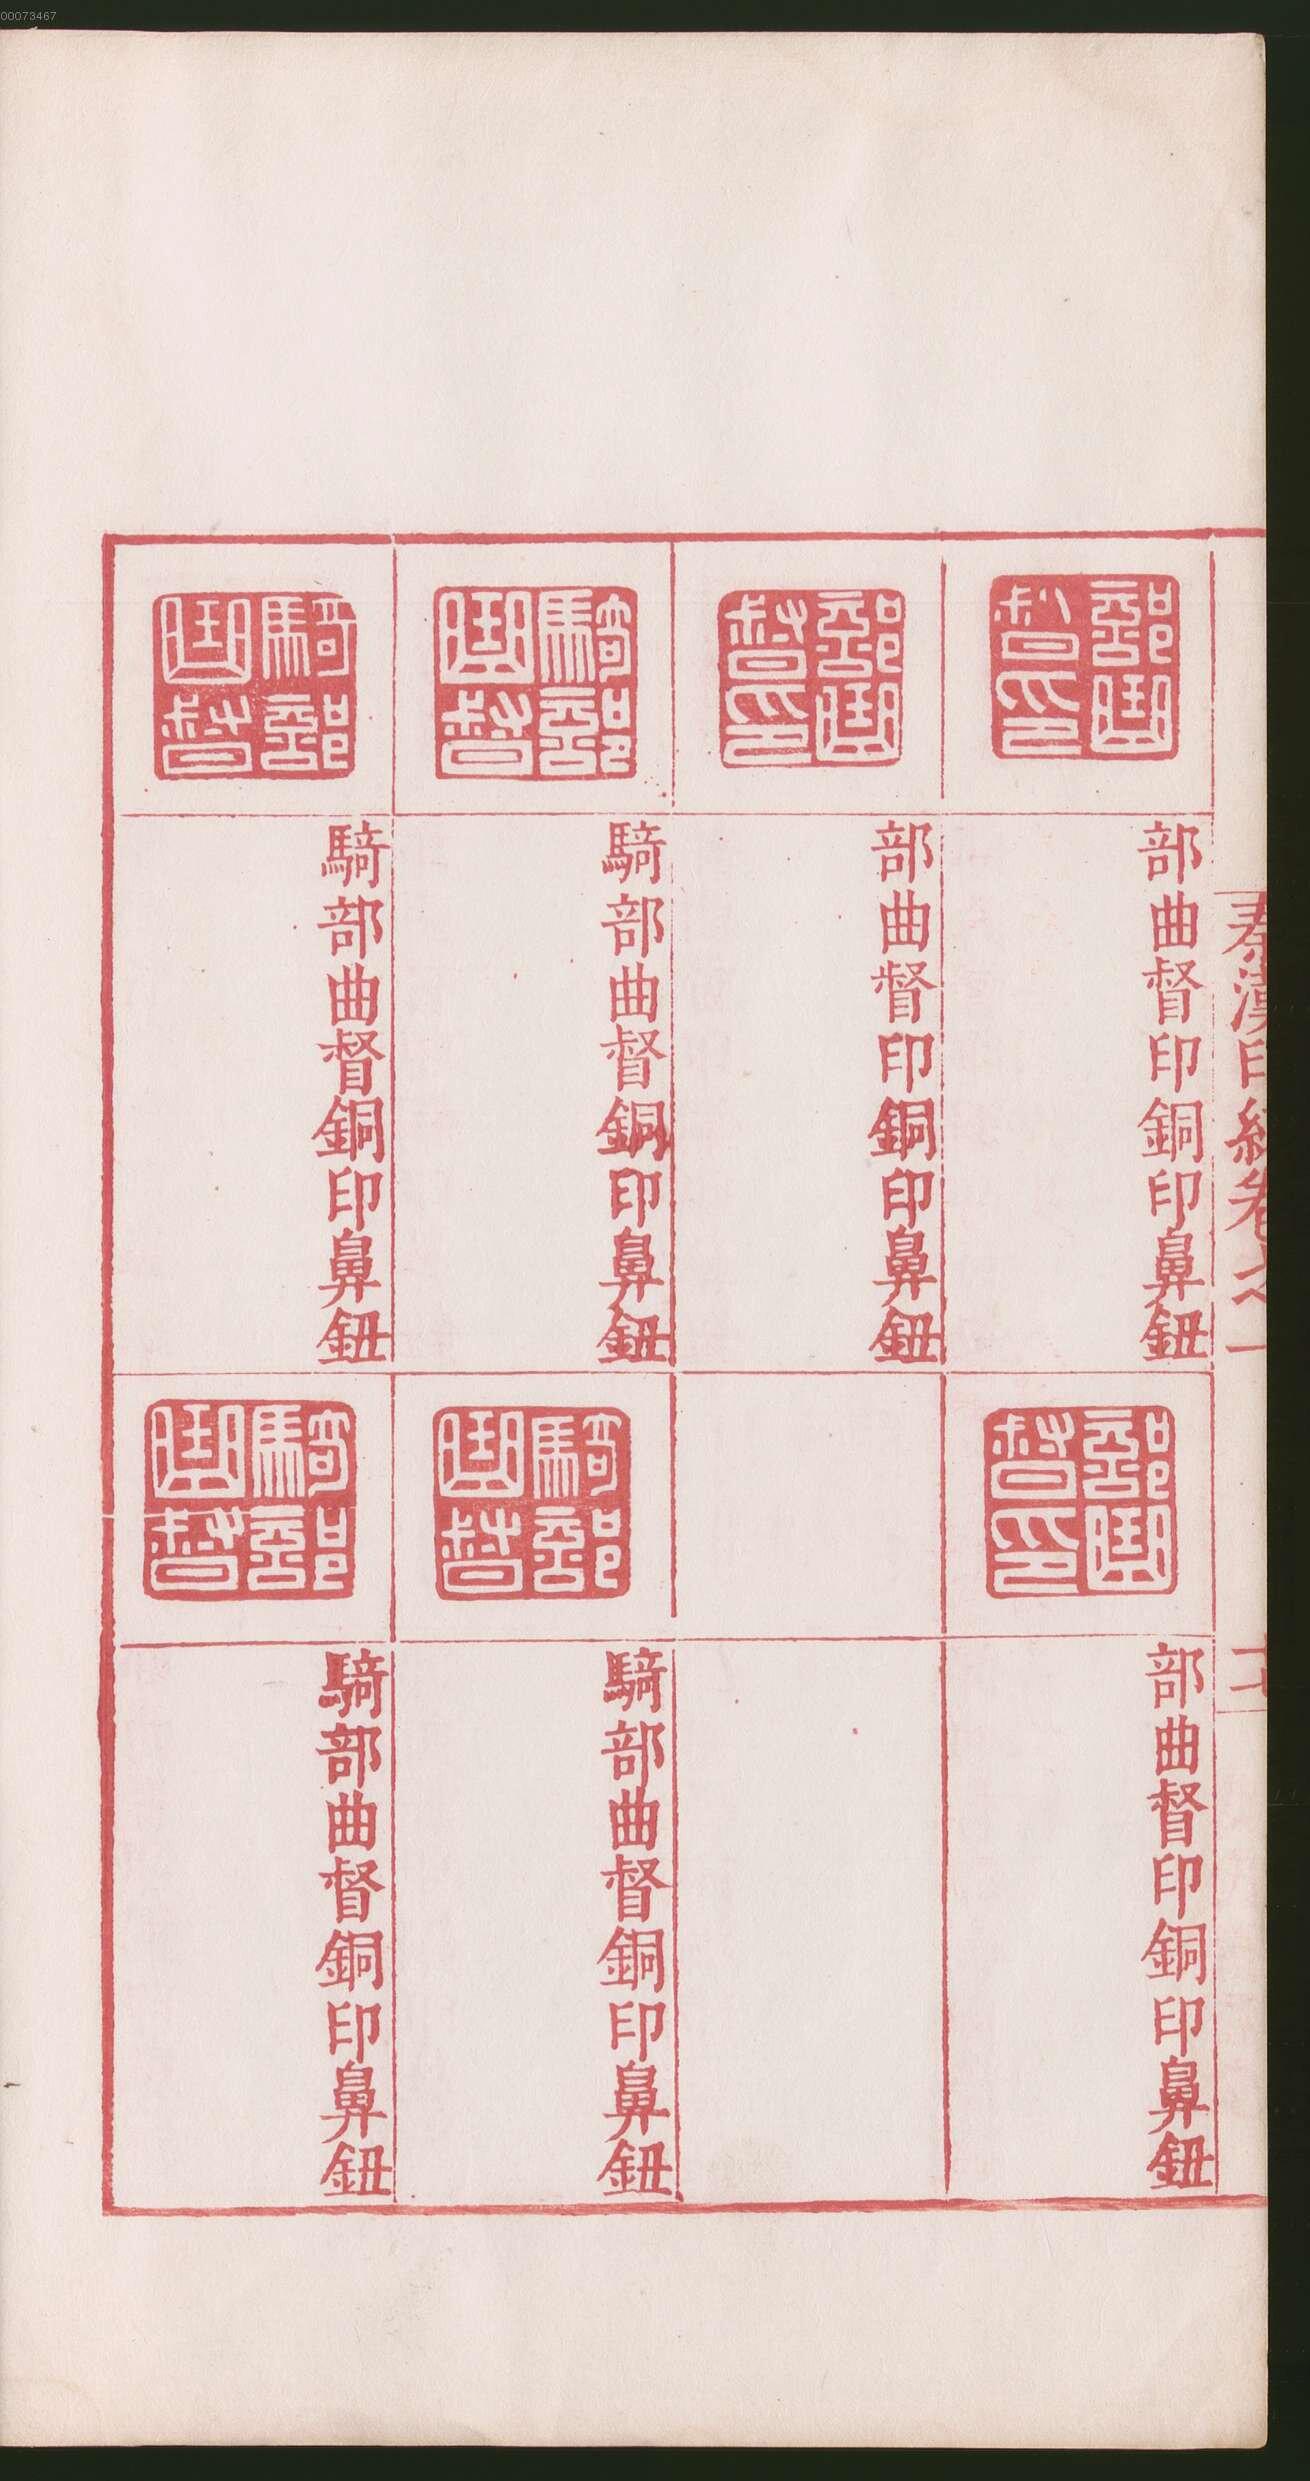 00073467
秦漢印統卷之一
十七
部曲督印
部曲督印銅印鼻鈕
部曲督印
部曲督印銅印鼻鈕
部曲督印
部曲督印銅印鼻鈕
騎部曲督
騎部曲督銅印鼻鈕
騎部曲督
騎部曲督銅印鼻鈕
騎部曲督
騎部曲督銅印鼻鈕
騎部曲督
騎部曲督銅印鼻鈕